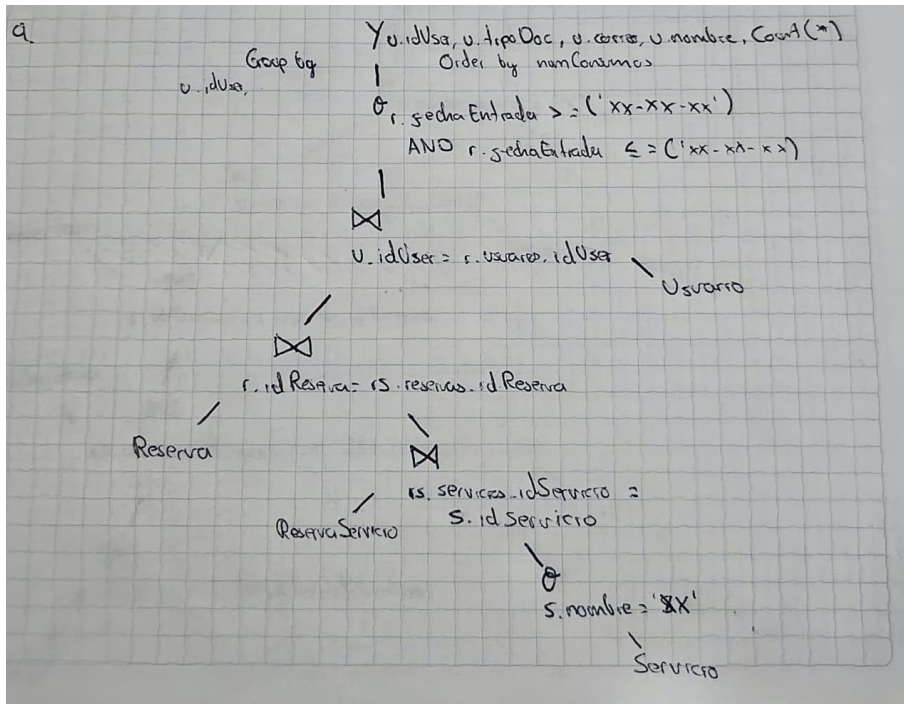 a.
γ u.idUse, u.tipoDoc, u.correo, u.nombre, Count(*)
Group by
Order by numConsumos
u.idUse,
σ r.fechaEntrada >= ('XX-XX-XX')
AND r.fechaEntrada <= ('XX-XX-XX)
⋈
u.idUser = r.usuarios.idUser
Usuario
⋈
r.idReserva = rs.reservas.idReserva
Reserva
⋈
rs.servicios.idServicio =
s.idServicio
ReservaServicio
σ
s.nombre = 'XX'
Servicio